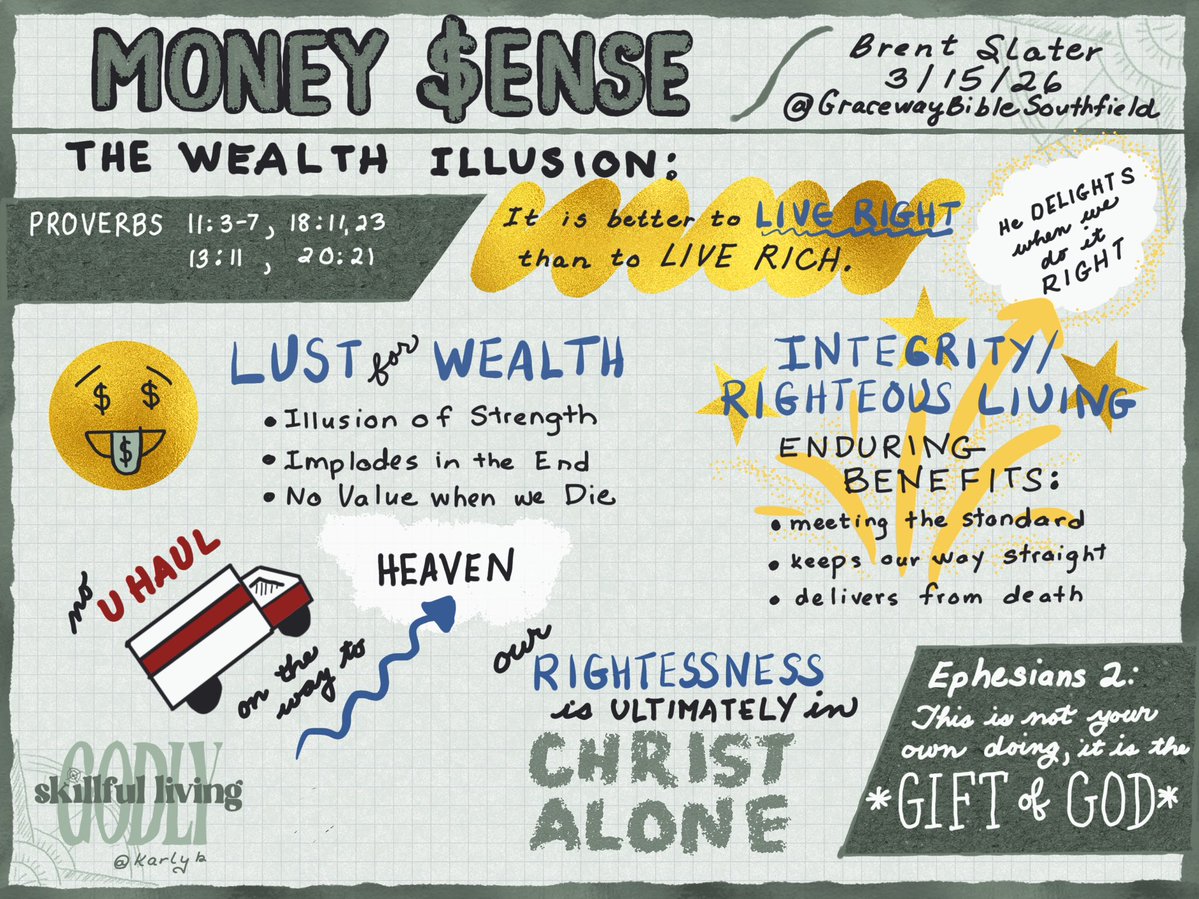 MONEY $ENSE
Brent Slater
3/15/26
@GracewayBibleSouthfield
THE WEALTH ILLUSION:
PROVERBS 11:3-7, 18:11,23
13:11 , 20:21
It is better to LIVE RIGHT
than to LIVE RICH.
He DELIGHTS
when we
do it
RIGHT
LUST for WEALTH
• Illusion of Strength
• Implodes in the End
• No Value when we Die
$ $
$
INTEGRITY/
RIGHTEOUS LIVING
ENDURING
BENEFITS:
• meeting the standard
• keeps our way straight
• delivers from death
no U HAUL
on the
way to
HEAVEN
our
RIGHTESSNESS
is ULTIMATELY in
CHRIST
ALONE
Ephesians 2:
This is not your
own doing, it is the
*GIFT of GOD*
GODLY
skillful living
GODLY
@karlyb